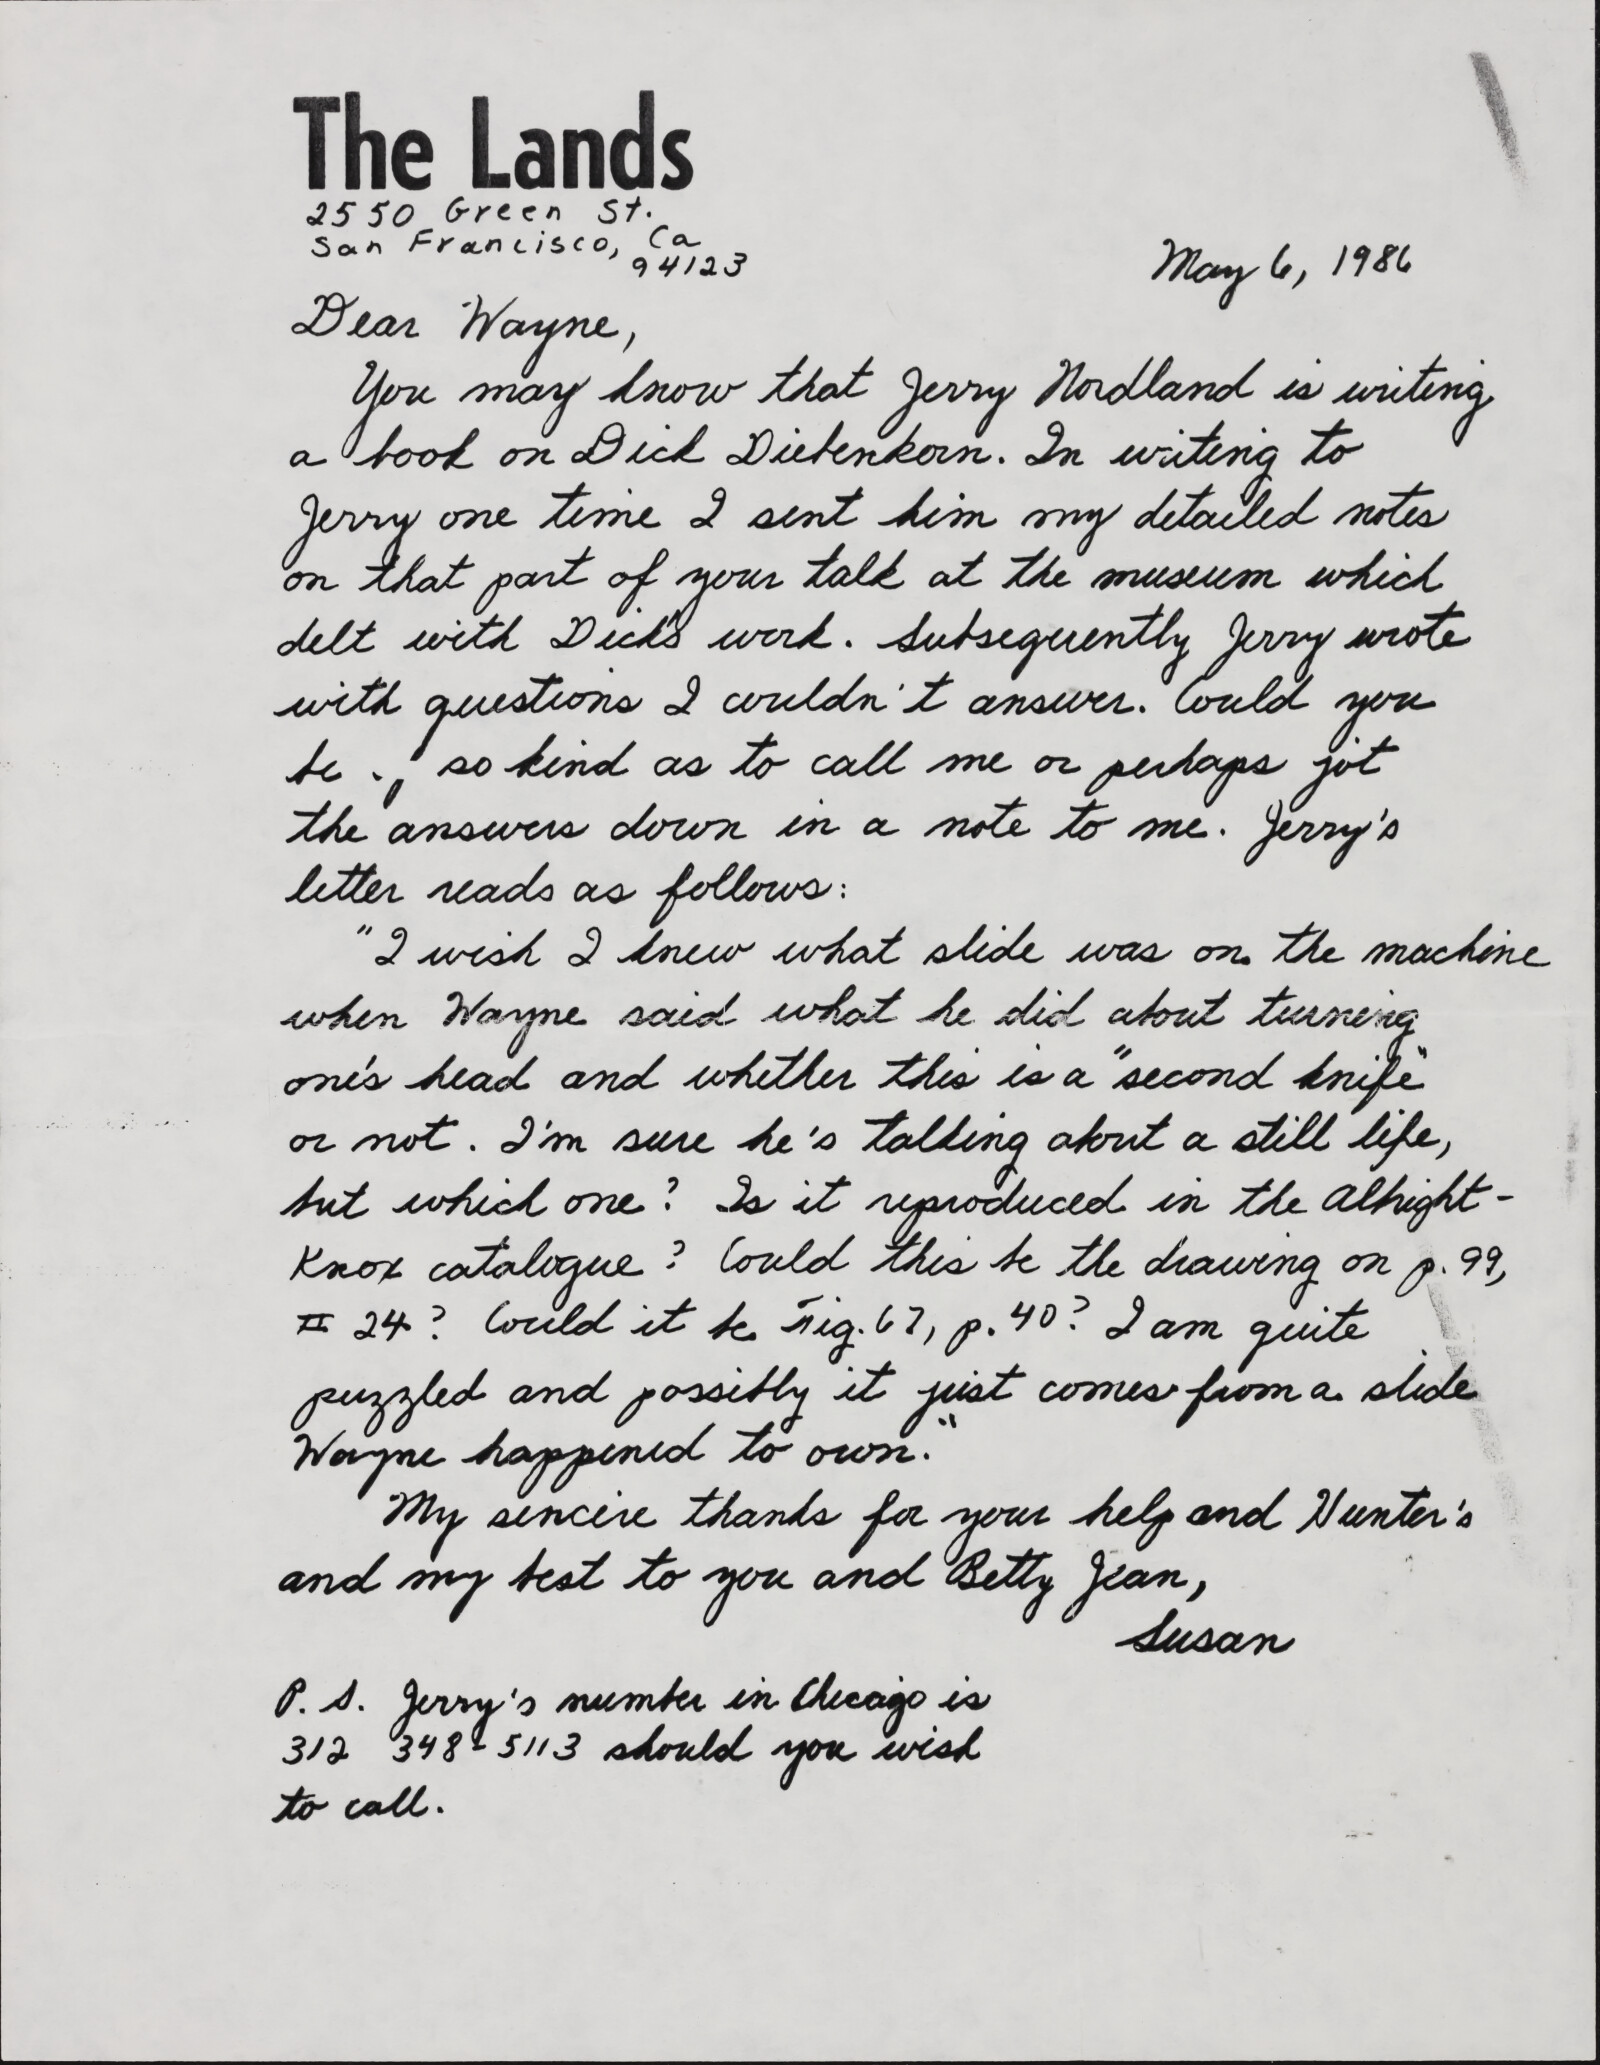 The Lands
2550 Green St.
San Francisco, Ca
94123
May 6, 1986
Dear Wayne,
You may know that Jerry Nordland is writing
a book on Dick Diebenkorn. In writing to
Jerry one time I sent him my detailed notes
on that part of your talk at the museum which
delt with Dick's work. Subsequently Jerry wrote
with questions I couldn't answer. Could you
be ., so kind as to call me or perhaps jot
the answers down in a note to me. Jerry's
letter reads as follows:
"I wish I knew what slide was on the machine
when Wayne said what he did about turning
one's head and whether this is a "second knife"
or not. I'm sure he's talking about a still life,
but which one? Is it reproduced in the Albright-
Knox catalogue? Could this be the drawing on p. 99,
II 24? Could it be Fig. 67, p. 40? I am quite
puzzled and possibly it just comes from a slide
Wayne happened to own."
My sincere thanks for your help and Hunter's
and my best to you and Betty Jean,
Susan
P. S. Jerry's number in Chicago is
312 348-5113 should you wish
to call.